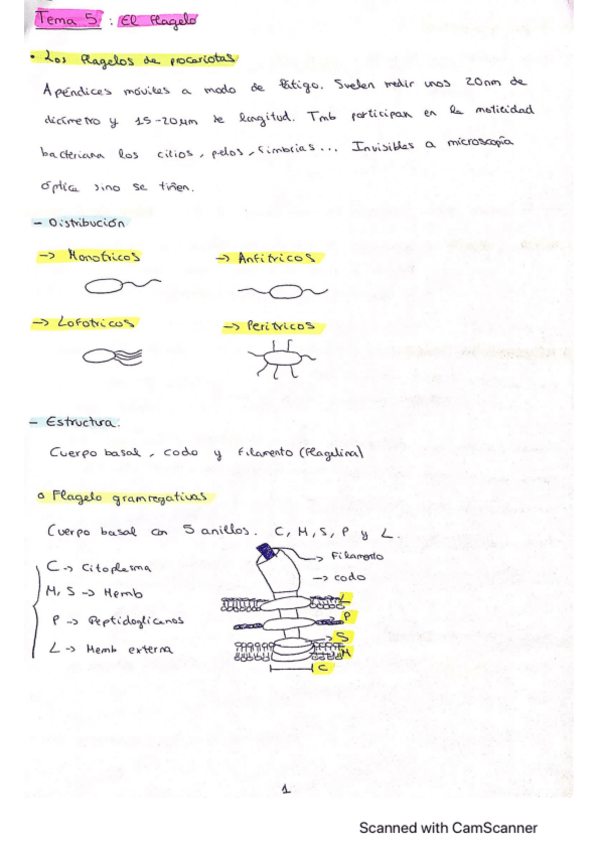 Tema 5 : El flagelo
• Los flagelos de procariotas
Apéndices móviles a modo de látigo. Suelen medir unos 20nm de
diámetro y 15-20µm de longitud. Tmb participan en la motilidad
bacteriana los cilios, pelos, fimbrias... Invisibles a microscopía
óptica sino se tiñen.
- Distribución
-> Monotricos -> Anfitricos
-> Lofotricos -> Peritricos
- Estructura:
Cuerpo basal, codo y filamento (flagelina)
o Flagelo gramnegativas
Cuerpo basal con 5 anillos. C, M, S, P y L.
-> Filamento
C -> Citoplasma
-> codo
M, S -> Memb
L
P -> Peptidoglicanos
P
S
L -> Memb externa
M
C
1
Scanned with CamScanner